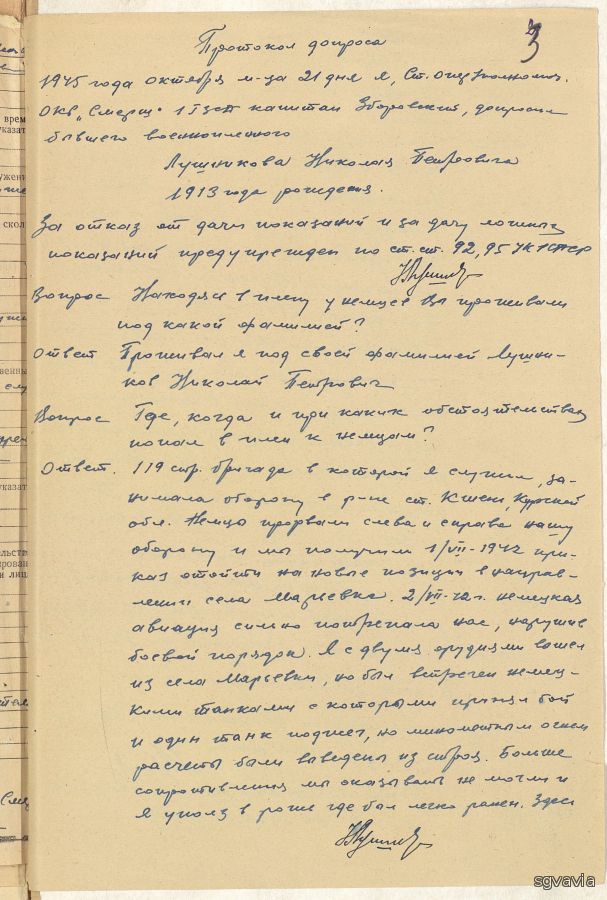 3
Протокол допроса
1945 года октября м-ца 21 дня я, Ст. оперуполномоч.
ОКР "Смерш" 1 ГЗСД капитан Зборовский, допросил
бывшего военнопленного
Лушникова Николая Петровича
1913 года рождения.
За отказ от дачи показаний и за дачу ложных
показаний предупрежден по ст. ст. 92, 95 УК РСФСР
Вопрос Находясь в плену у немцев Вы проживали
под какой фамилией?
Ответ Проживал я под своей фамилией Лушни-
ков Николай Петрович
Вопрос Где, когда и при каких обстоятельствах
попал в плен к немцам?
Ответ. 119 стр. бригада в которой я служил, за-
нимала оборону в р-не ст. Кшень, Курской
обл. Немцы прорвали слева и справа нашу
оборону и мы получили 1/VII-1942 при-
каз отойти на новые позиции в направ-
лении села Марьевка. 2/VII-42 г. немецкая
авиация сильно потрепала нас, нарушив
боевой порядок. Я с двумя орудиями вышел
из села Марьевки, но был встречен немец-
кими танками с которыми принял бой
и один танк поджег, но минометным огнем
расчеты были выведены из строя. Больше
сопротивления мы оказывать не могли и
я уполз в рожь где был легко ранен. Здесь
sgvavia